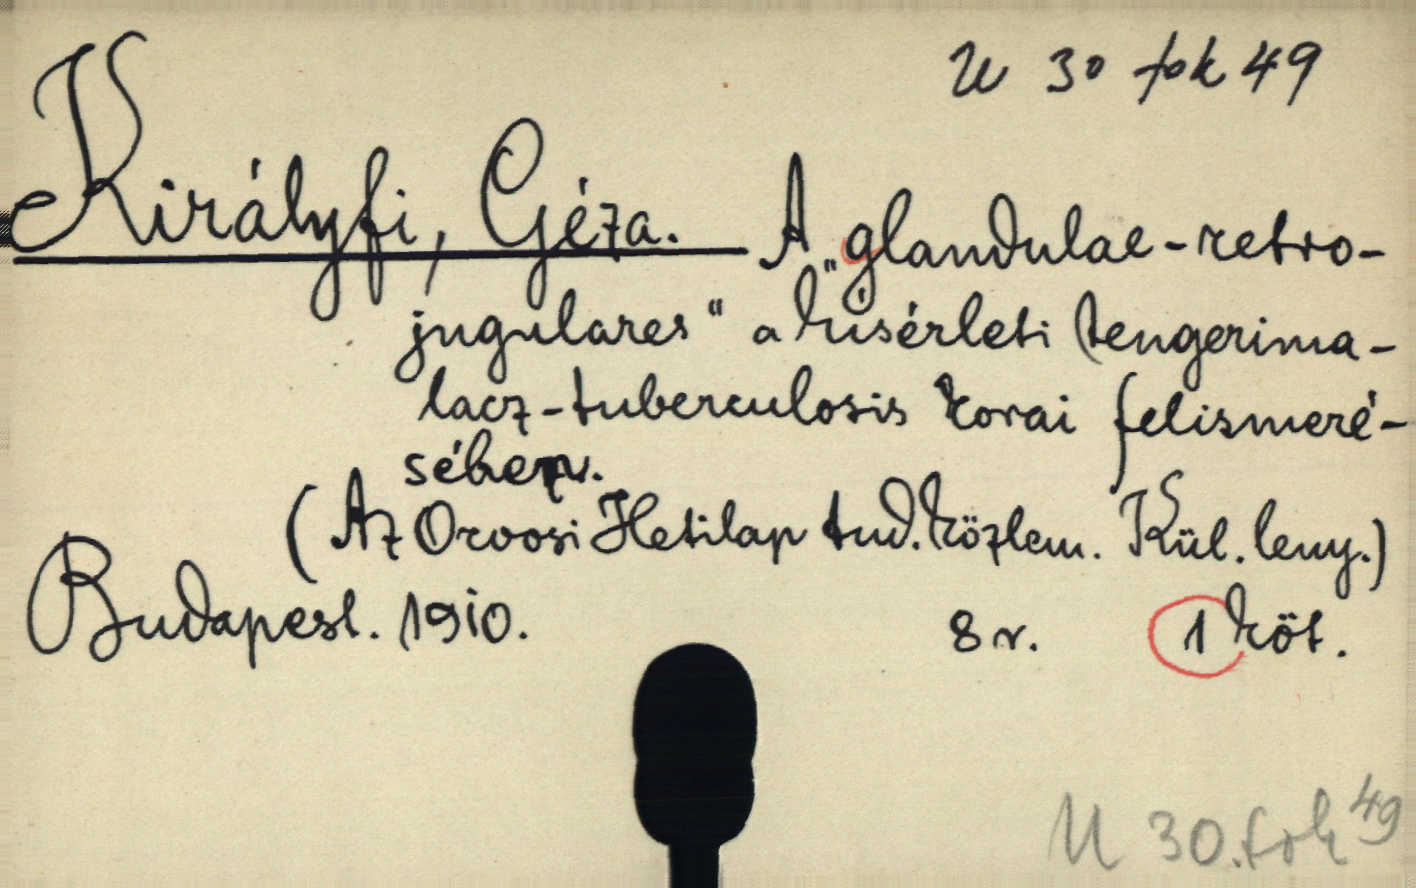 U 30 fok 49
Királyfi, Géza. A „glandulae-retro-
jugulares" a kisérleti tengerima-
lacz-tuberculosis korai felismeré-
sében.
(Az Orvosi Hetilap tud. közlem. Kül. leny.)
Budapest. 1910. 8 r. 1 köt.
U 30. fok 49